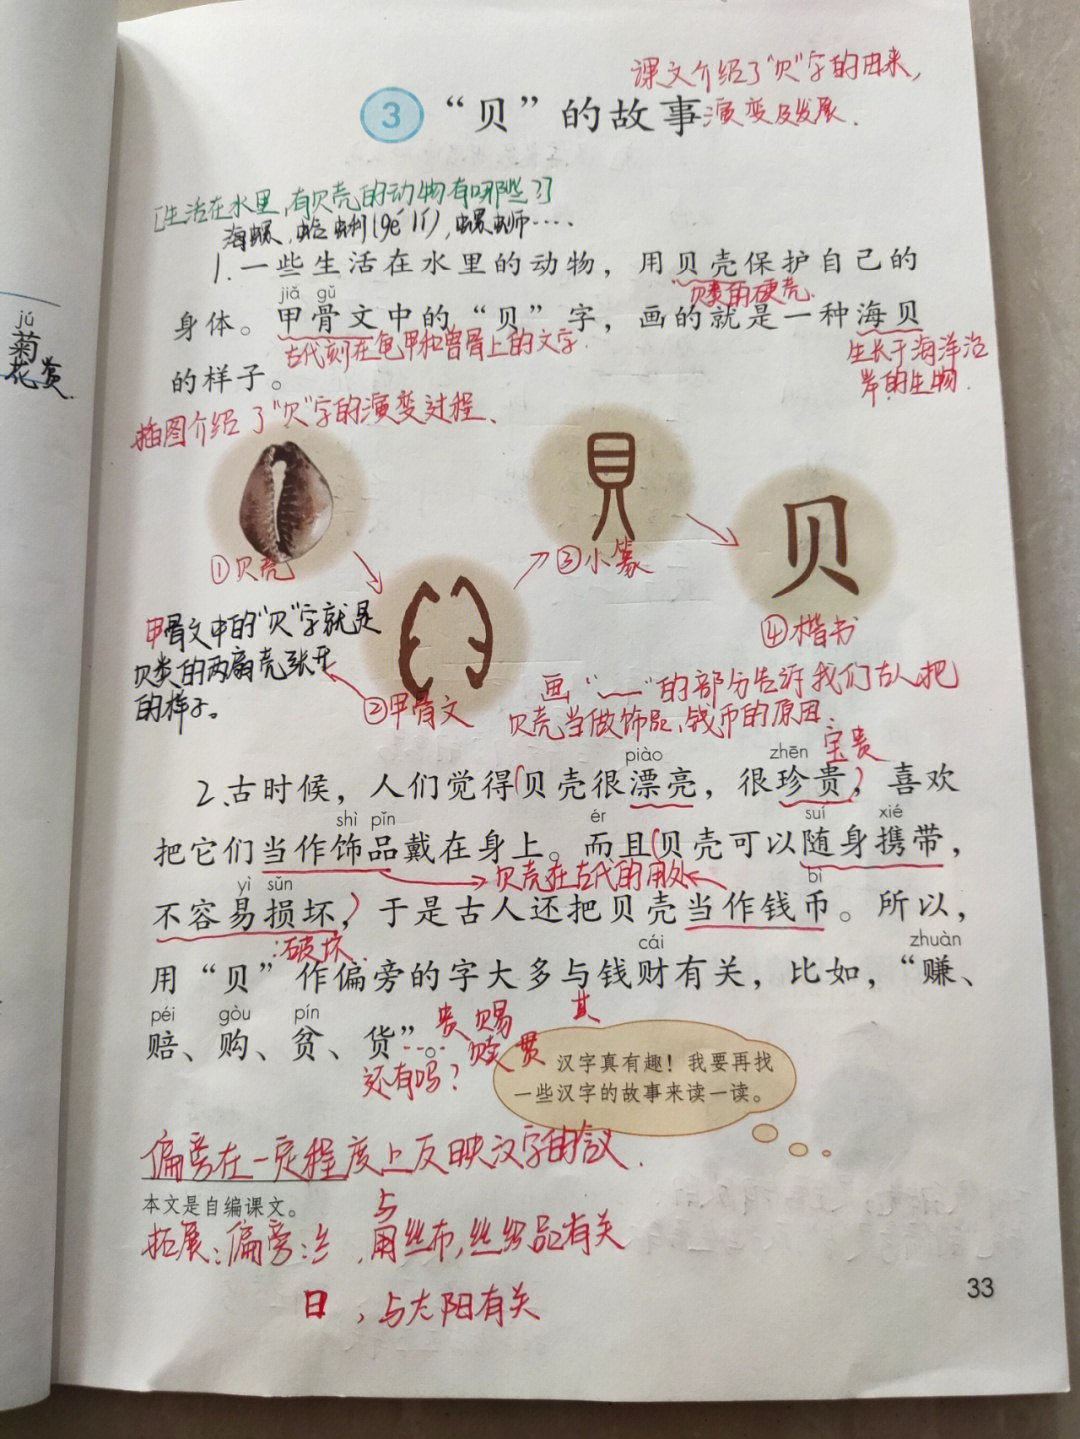 课文介绍了"贝"字的由来,
3 “贝”的故事 演变及发展.
[生活在水里,有贝壳的动物有哪些?]
海螺,蛤蜊(gé lí),螺蛳····
1.一些生活在水里的动物，用贝壳保护自己的
贝类的硬壳.
jiǎ gǔ
身体。甲骨文中的“贝”字，画的就是一种海贝
古代刻在龟甲和兽骨上的文字.
生长于海洋沿
岸的生物.
的样子。
jú
菊
花赏
插图介绍了"贝"字的演变过程、
貝
贝
①贝壳
③小篆
④楷书
甲骨文中的"贝"字就是
贝类的两扇壳张开
的样子。
②甲骨文
画"﹏"的部分告诉我们古人把
贝壳当做饰品、钱币的原因.
宝贵
piào zhēn
2、古时候，人们觉得(贝壳很漂亮，很珍贵)，喜欢
shì pǐn ér suí xié
把它们当作饰品戴在身上。而且(贝壳可以随身携带，
贝壳在古代的用处
yì sǔn bì
不容易损坏，)于是古人还把贝壳当作钱币。所以，
:破坏.
cái zhuàn
用“贝”作偏旁的字大多与钱财有关，比如，“赚、
péi gòu pín
赔、购、贫、货”。
贵 赐
还有吗?
汉字真有趣！我要再找
一些汉字的故事来读一读。
偏旁在一定程度上反映汉字的含义.
本文是自编课文。
与
拓展:偏旁:纟,用丝布,丝织品有关
日,与太阳有关
33